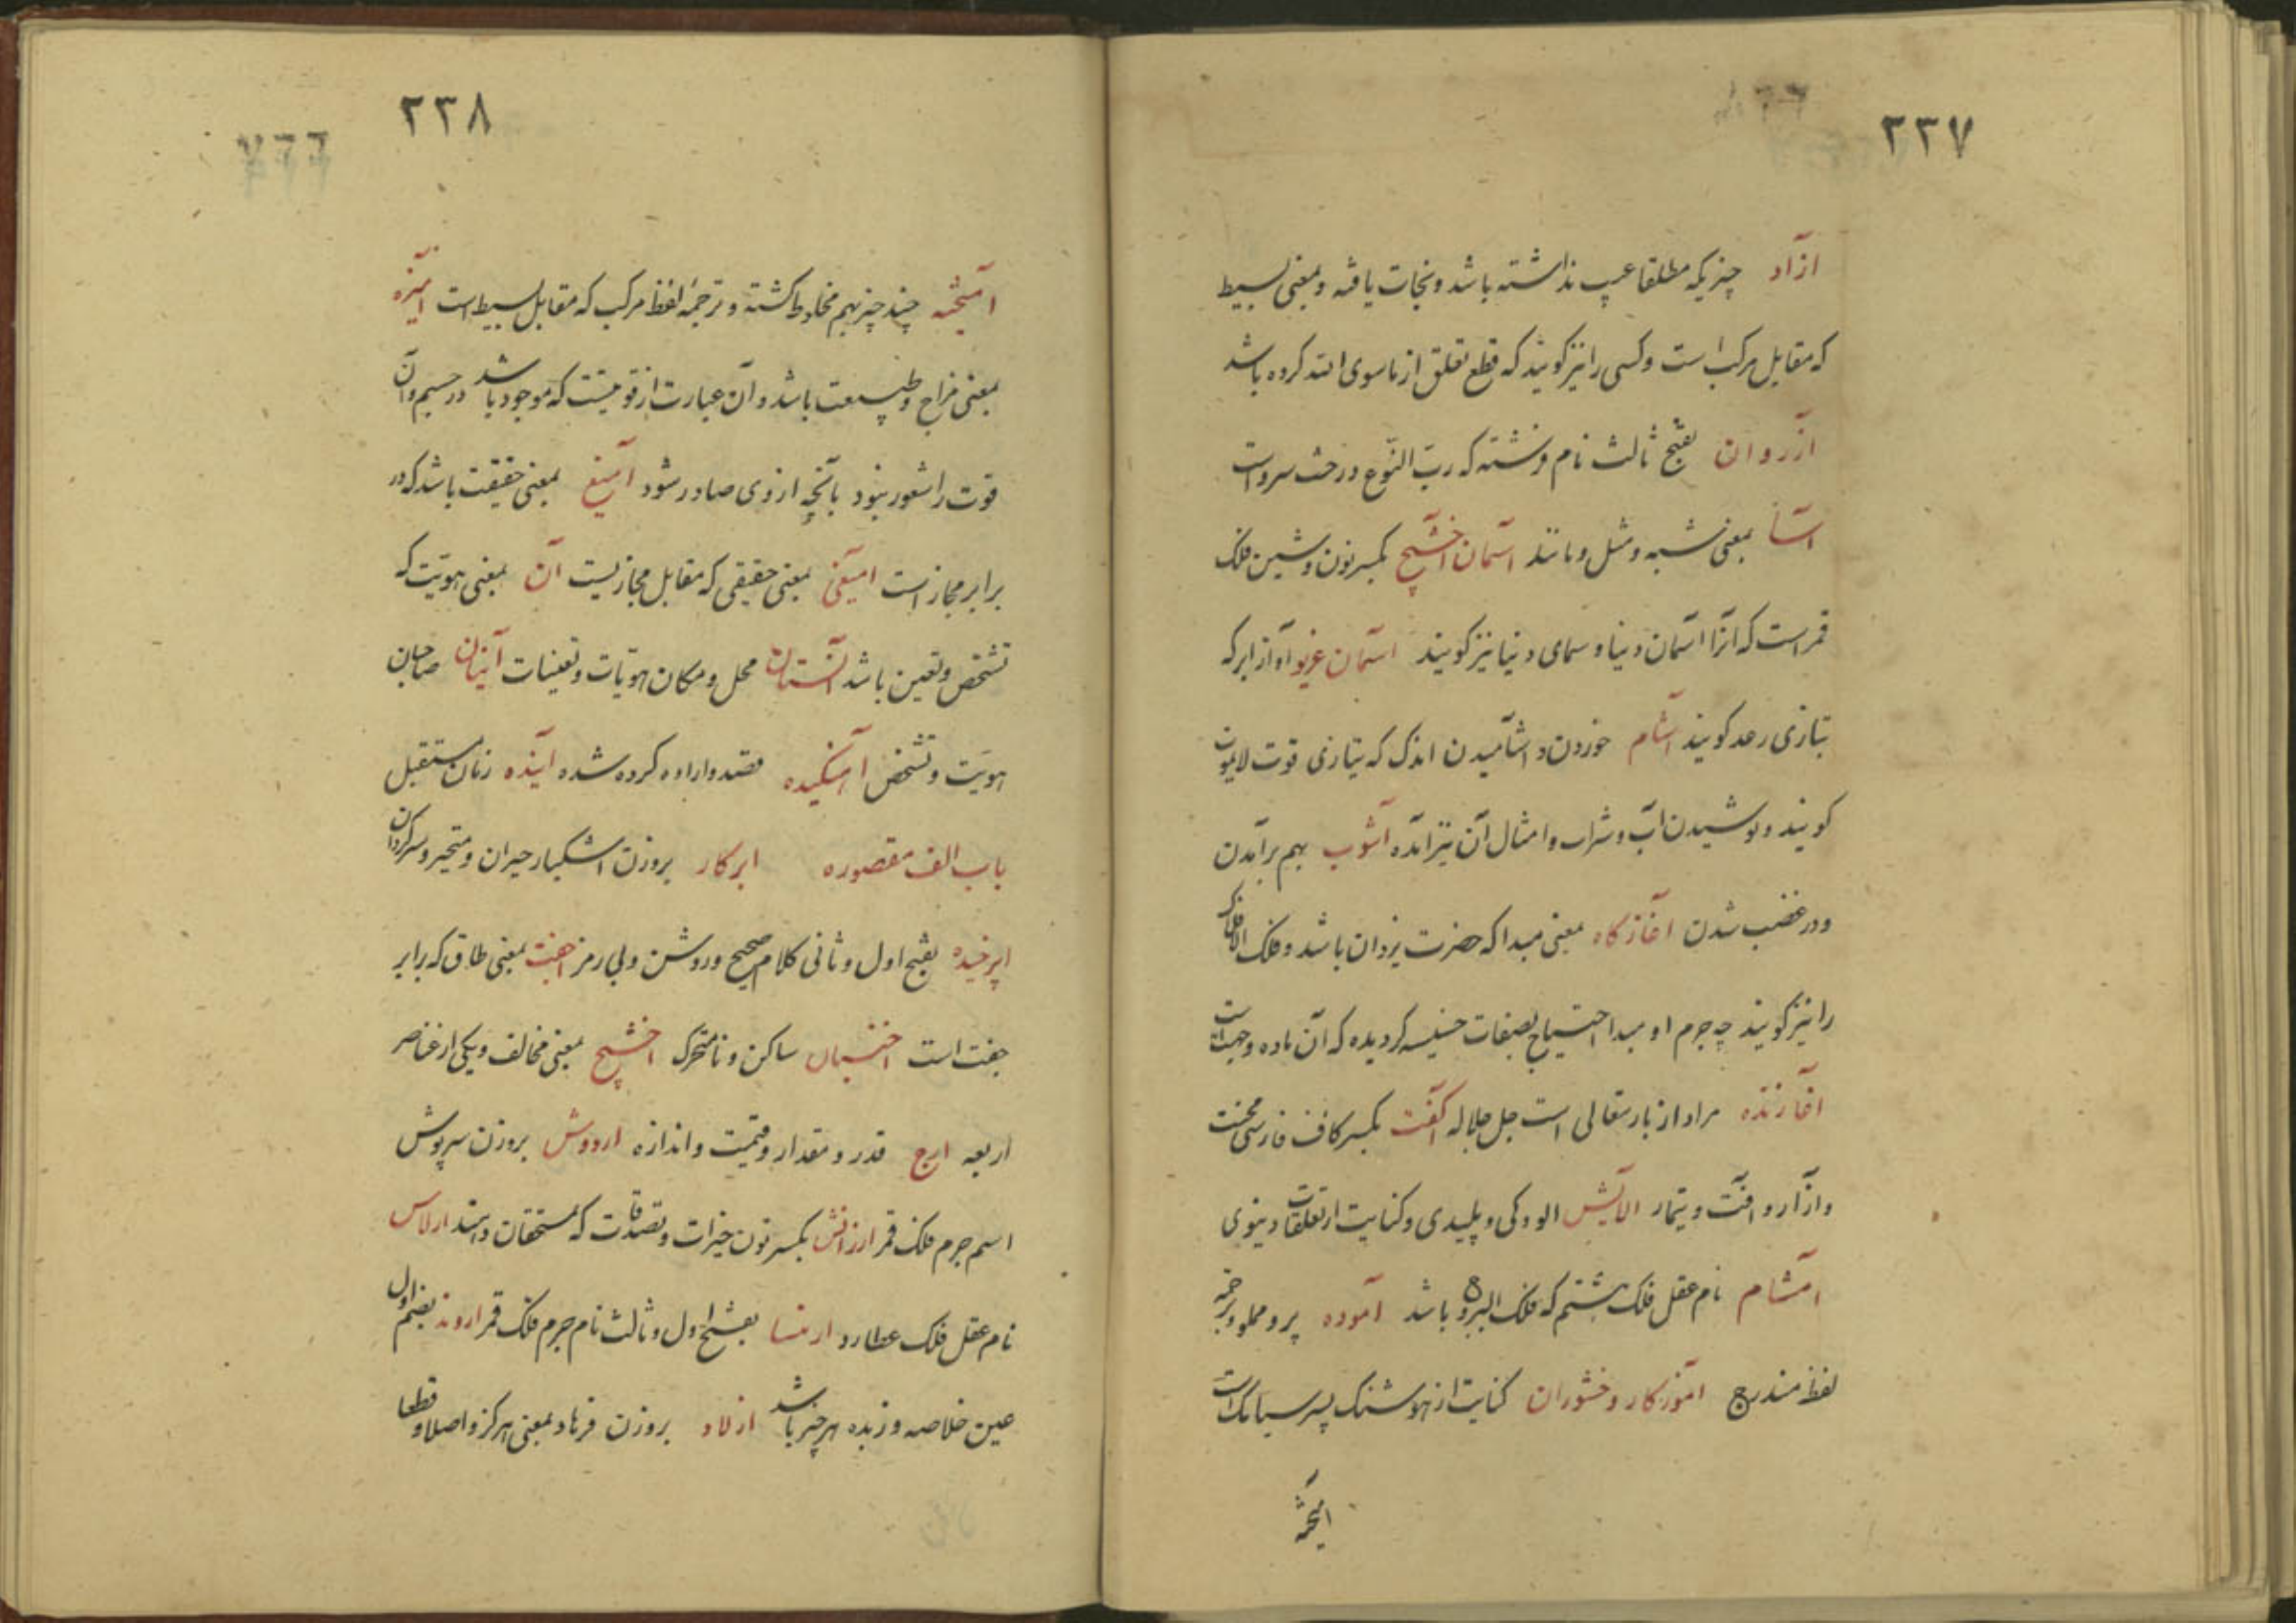 ۲۳۷
آزاد چیزیکه مطلقا عیب نداشته باشد و نجات یافته و بمعنی بسیط
که مقابل مرکب است و کسی را نیز کویند که قطع تعلق از ماسوی الله کرده باشد
آزروان بفتح ثالث نام فرشته که رب النّوع درخت سرو است
آسا بمعنی شبه و مثل و مانند آسمان اخشیج بکسر نون و شین فلک
قمر است که آنرا آسمان دنیا و سمای دنیا نیز کویند آسمان غریو آواز ابر که
بتازی رعد کویند آشام خوردن و اشامیدن اندک که بتازی قوت لایموت
کویند و نوشیدن آب و شراب و امثال آن نیز آمده آشوب بهم برآمدن
و در غضب شدن آغازکاه معنی مبدا که حضرت یزدان باشد و فلک الافلاک
را نیز کویند چه جرم او مبدا احتیاج بصفات خسیسه کردیده که آن ماده و جهت است
آغازنده مراد از باریتعالی است جل جلاله آکفت بکسر کاف فارسی محنت
و آزار و آفت و تیمار آلایش الودکی و پلیدی و کنایت از تعلقات دینوی
امشام نام عقل فلک هشتم که فلک البروج باشد آموده پر و مملو و ترجمه
لفظ مندرج آموزکار وخشوران کنایت از هوشنک پسر سیامک است
آمیخته
۲۳۸
آمیخته چند چیز بهم مخلوط کشته و ترجمهٔ لفظ مرکب که مقابل بسیط است آمیزه
بمعنی مزاج و طبیعت باشد و آن عبارت از قوتیست که موجود باشد در جسم و آن
قوت را شعور نبود بآنچه از وی صادر شود آمیغ بمعنی حقیقت باشد که در
برابر مجاز است آمیغی بمعنی حقیقی که مقابل مجازیست آن بمعنی هویّت که
تشخص و تعین باشد آنستان محل و مکان هویّات و تعینات آنیان صاحبان
هویّت و تشخص آهنکیده قصد و اراده کرده شده آینده زمان مستقبل
باب الف مقصوره ابرکار بروزن اشکبار حیران و متحیر و سرکردان
اپرخیده بفتح اول و ثانی کلام صحیح و روشن و بی رمز اجفت بمعنی طاق که برابر
جفت است اخنبان ساکن و نامتحرک اخشیج بمعنی مخالف و یکی از عناصر
اربعه ارج قدر و مقدار و قیمت و اندازه اردوش بروزن سرپوش
اسم جرم فلک قمر ارزانش بکسر نون خیرات و تصدقات که بمستحقان دهند ارلاس
نام عقل فلک عطارد ارمنسا بفتح اول و ثالث نام جرم فلک قمر اروند بضم اول
عین خلاصه و زبده هر چیز باشد ازلاد بروزن فرهاد بمعنی هرکز و اصلا و قطعا